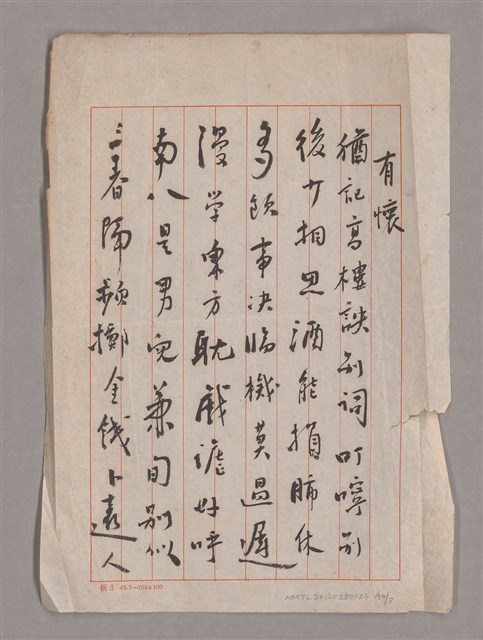 有懷
猶記高樓訣別詞叮嚀別
後少相思酒能損肺休
多飲事決臨機莫過遲
漫學東方耽戲謔好呼
南八是男兒兼旬別似
三春隔頻擲金錢卜遠人
NMTL20120280025